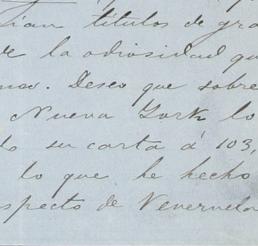 tian titulos de gra
de la odiosidad qu
nea. Deseo que sobre
Nueva York lo
do su carta á 103,
lo que he hecho
specto de Venezuela